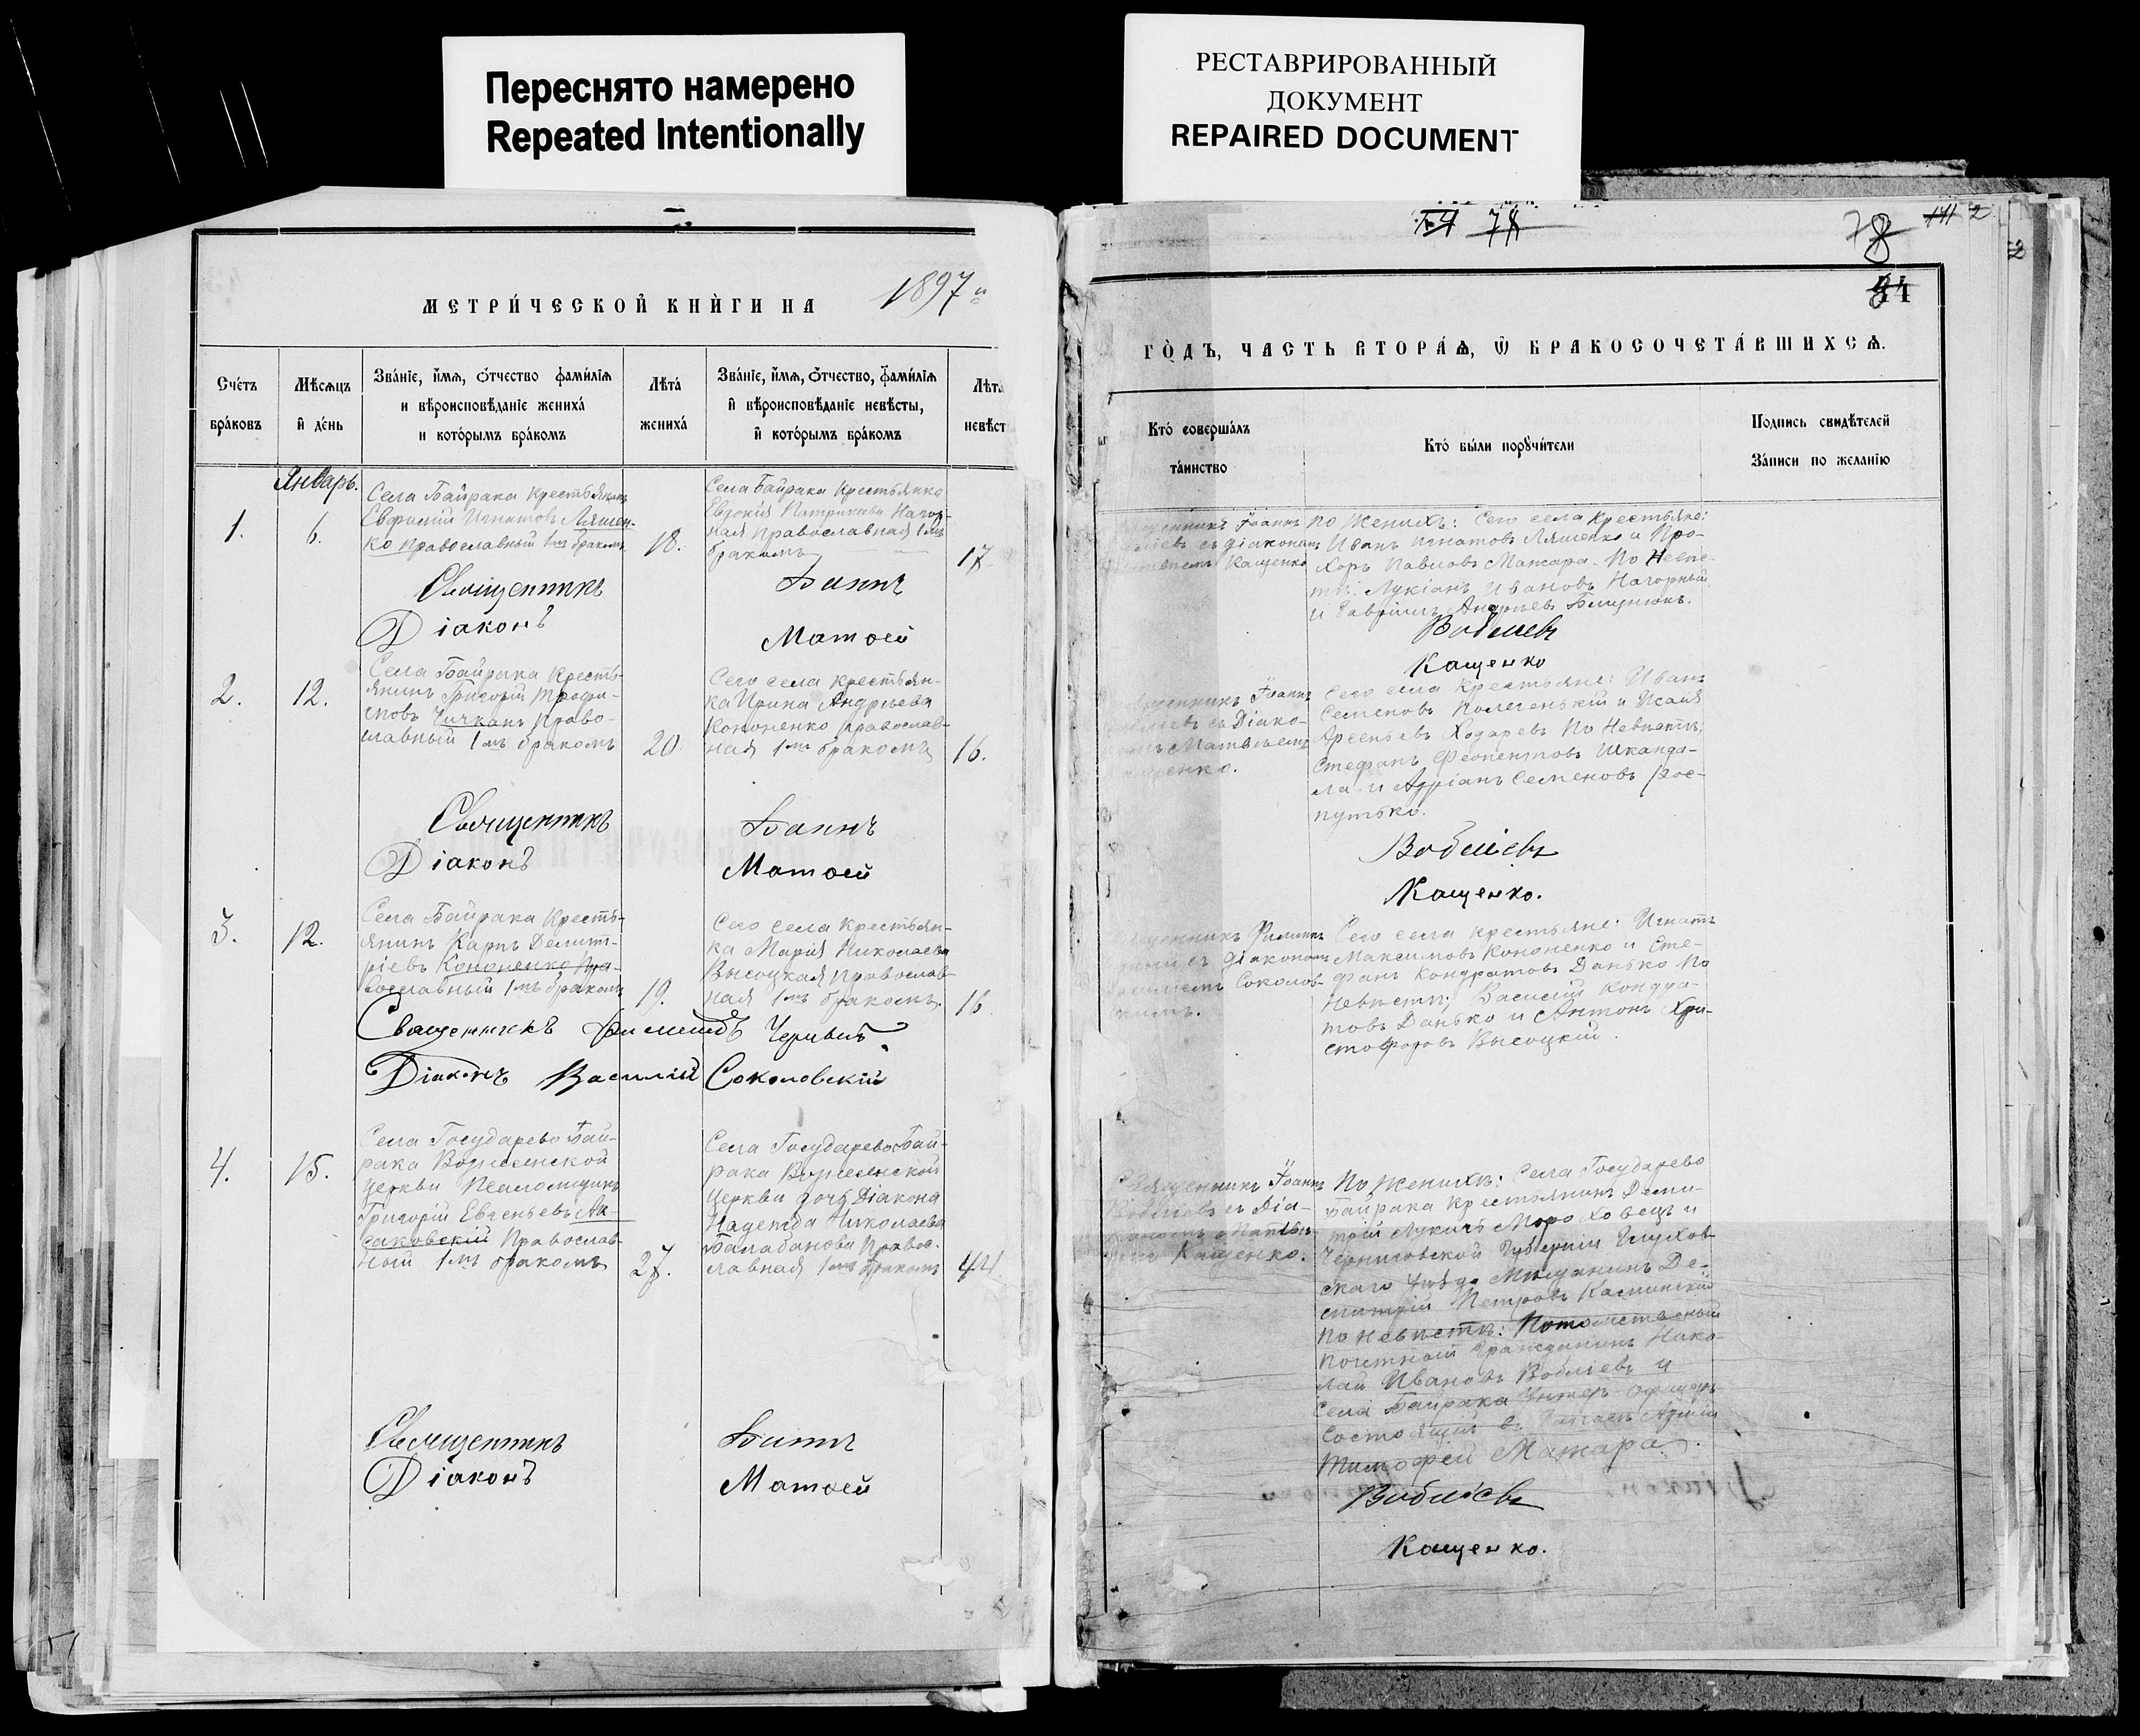 Переснято намерено
Repeated Intentionally
РЕСТАВРИРОВАННЫЙ
ДОКУМЕНТ
REPAIRED DOCUMENT
МЕТРИ́ЧЕСКОЙ КНИ́ГИ НА 1897
Сче́тъ бра́ковъ
Мѣ́сяцъ и҆ де́нь
Зва́нїе, и҆́мѧ, ѻ҆́тчество фами́лїѧ
и вѣроисповѣ́данїе жениха́
и кото́рымъ бра́комъ
Лѣта́ жениха́
Зва́нїе, и҆́мѧ, ѻ҆́тчество, фами́лїѧ
и҆ вѣроисповѣ́данїе невѣ́сты,
и҆ кото́рымъ бра́комъ
Лѣта́
невѣст
Январь.
1.
6.
Села Байрака крестьянинъ
Евфимій Игнатовъ Ляшен-
ко православный 1мъ бракомъ
18.
Села Байрака крестьянка
Евдокія Патрикіева Нагор-
ная православная 1мъ
бракомъ
17
Священникъ Іоаннъ
Діаконъ Матѳей
2.
12.
Села Байрака кресть-
янинъ Григорій Трофи-
мовъ Чичканъ право-
славный 1мъ бракомъ
20
Сего села крестьян-
ка Ирина Андреева
Кононенко православ-
ная 1мъ бракомъ
16.
Священникъ Іоаннъ
Діаконъ Матѳей
3.
12.
Села Байрака кресть-
янинъ Карпъ Димит-
ріевъ Кононенко пра-
вославный 1мъ бракомъ
19.
Сего села крестьян-
ка Марія Николаева
Высоцкая православ-
ная 1мъ бракомъ
16
Священникъ Филиппъ
Діаконъ Василій Соколовскій
4.
15.
Села Государево Бай-
рака Вознесенской
церкви Псаломщикъ
Григорій Евгеньевъ
саковскій Православ-
ный 1мъ бракомъ
27.
Села Государево Бай-
рака Вознесенской
церкви дочь Діакона
Надежда Николаева
Балабанова Правос-
лавная 1мъ бракомъ
Священникъ Іоаннъ
Діаконъ Матѳей
78
2
ГО́ДЪ, ЧАСТЬ ВТОРА́Ѧ, Ѽ БРАКОСОЧЕТА́ВШИХСѦ.
Кто́ соверша́лъ
та́инство
Кто́ бы́ли порꙋчи́тели
По́дпись свидѣ́телей
За́писи по жела́нїю
Іоаннъ
съ діакономъ
Кащенко
По женихѣ: Сего села крестьяне:
Иванъ Игнатовъ Ляшенко и Про-
хоръ Павловъ Мажара. По Невѣс-
тѣ: Лукіанъ Ивановъ Нагорный
и Гавріилъ Андреевъ
Воблиевъ
Кащенко
Іоаннъ
съ Діако-
Матвѣемъ
Сего села крестьяне: Иванъ
Семеновъ и Исаія
Арсеньевъ Ходаревъ По Невѣстѣ:
Стефанъ Шканда-
ла и Адріанъ Семеновъ
путько.
Воблієвъ
Кащенко.
Филиппъ
съ діакономъ
Соколов-
Сего села крестьяне: Игнатъ
Максимовъ Кононенко и Сте-
фанъ Кондратовъ Данько По
Невѣстѣ; Василій Кондра-
товъ Данько и Антонъ Хри-
стофоровъ Высоцкій.
Священникъ Іоаннъ
Воблієвъ съ Діа-
Кащенко.
По женихѣ: Села Государево
Байрака крестьянинъ Дими-
трій Лукичъ Мороховецъ и
Черниговской Губерніи Глухов-
скаго Уѣзда Мѣщанинъ Ди-
митрій Петровъ Каминскій
По невѣстѣ: Потомственный
почетный гражданинъ Нико-
лай Ивановъ Воблієвъ и
села Байрака Унтеръ-офицеръ
состоящій въ запасѣ Арміи
Тимофей Мажара.
Воблієвъ
Кащенко.